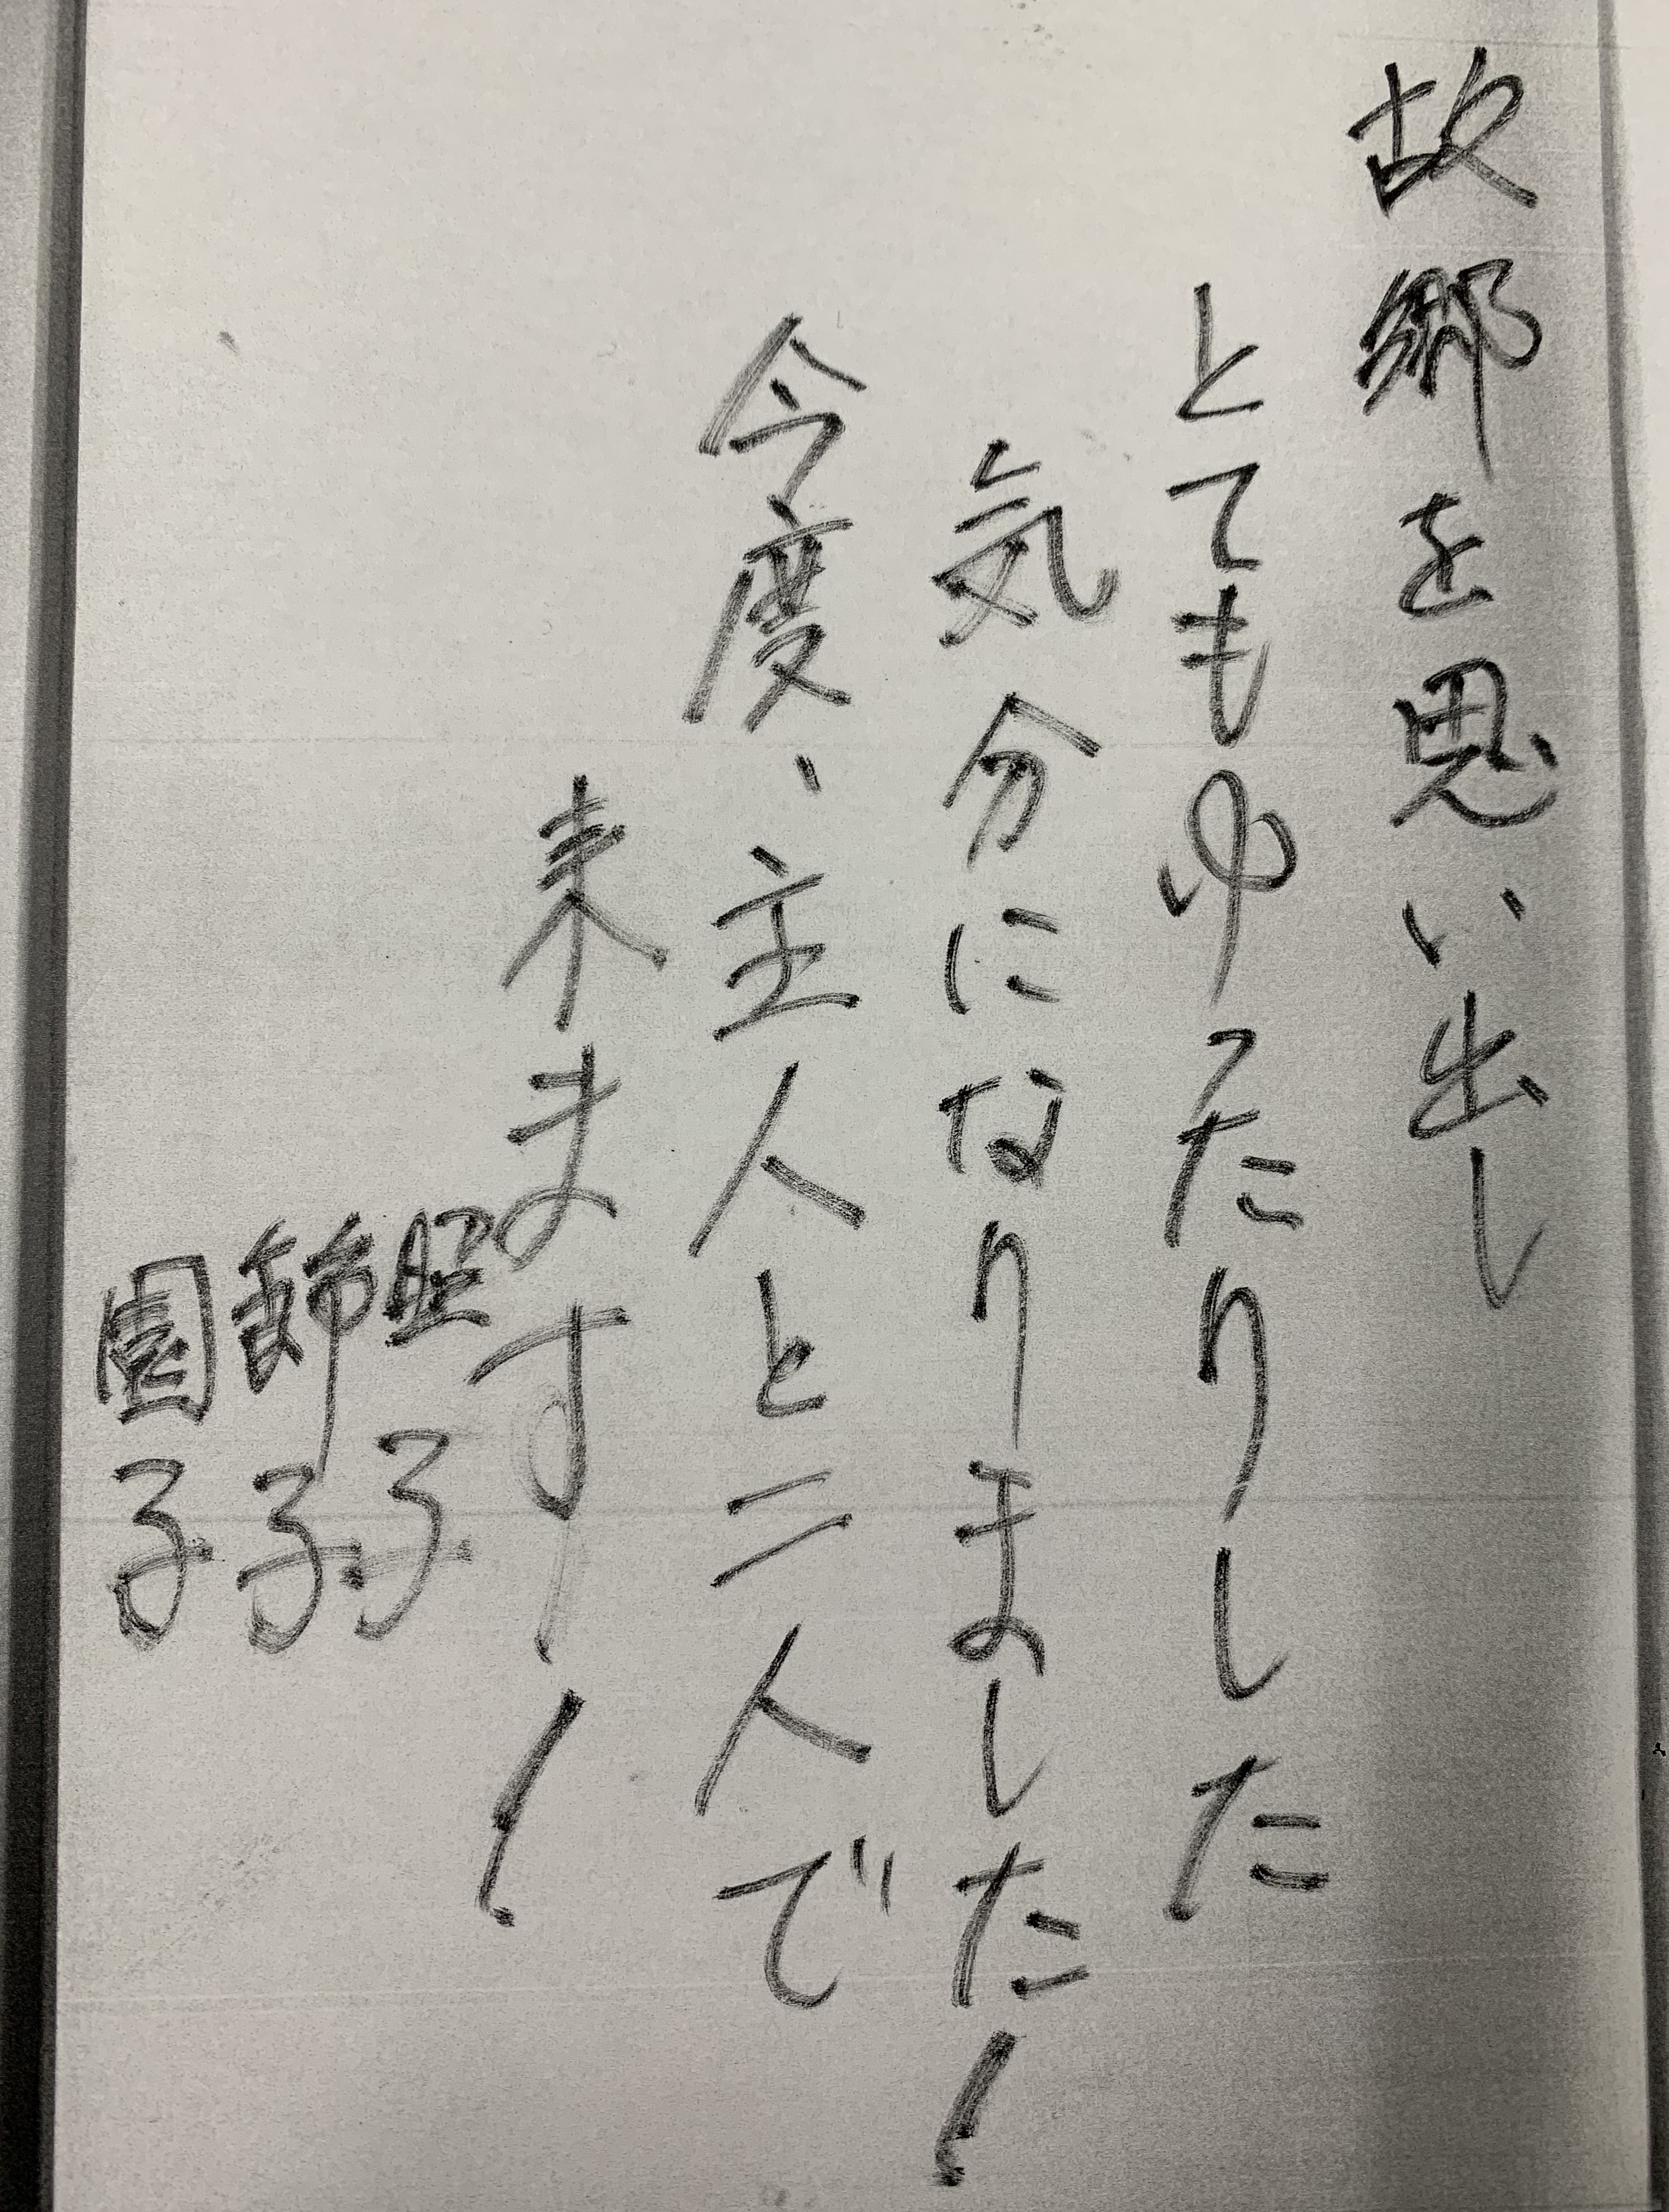 故郷を思い出し
とてもゆたりした
気分になりました!
今度、主人と二人で
来ます!
子
節子
園子